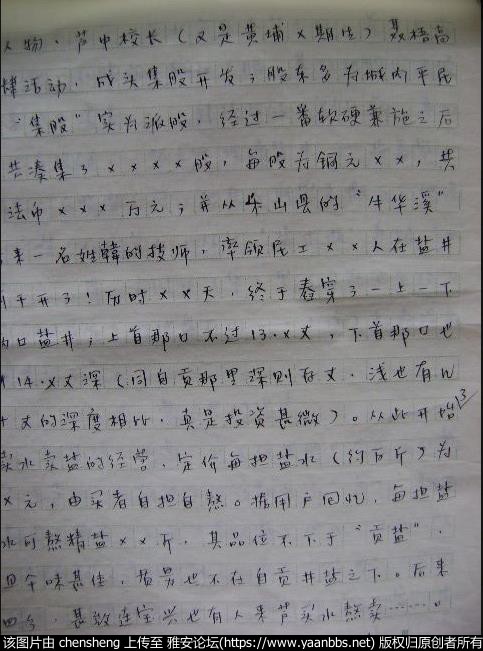 人物，芦中校长（又是黄埔×期生）聂梧高
活动，成头集股开发；股东多为城内平民
"集股"实为派股，经过一番软硬兼施之后
共凑集了××××股，每股为铜元××，共
法币×××万元；并从乐山县的"牛华溪"
来一名姓韩的技师，率领民工××人在盐井
干开了！历时××天，终于舂穿了一上一下
口盐井；上首那口不过13.×丈，下首那口也
14.×丈深（同自贡那里深则百丈，浅也有几
十丈的深度相比，真是投资甚微）。从此开始了
卖水卖盐的经营，定价每担盐水（约百斤）为
×元，由买者自担自熬。据用户回忆，每担盐
水可熬精盐××斤，其品位不下于"贡盐"，
回味甚佳，质另也不在自贡井盐之下。后来
甚致连宝兴也有人来芦买水熬卖……。
该图片由 chensheng 上传至 雅安论坛(https://www.yaanbbs.net) 版权归原创者所有